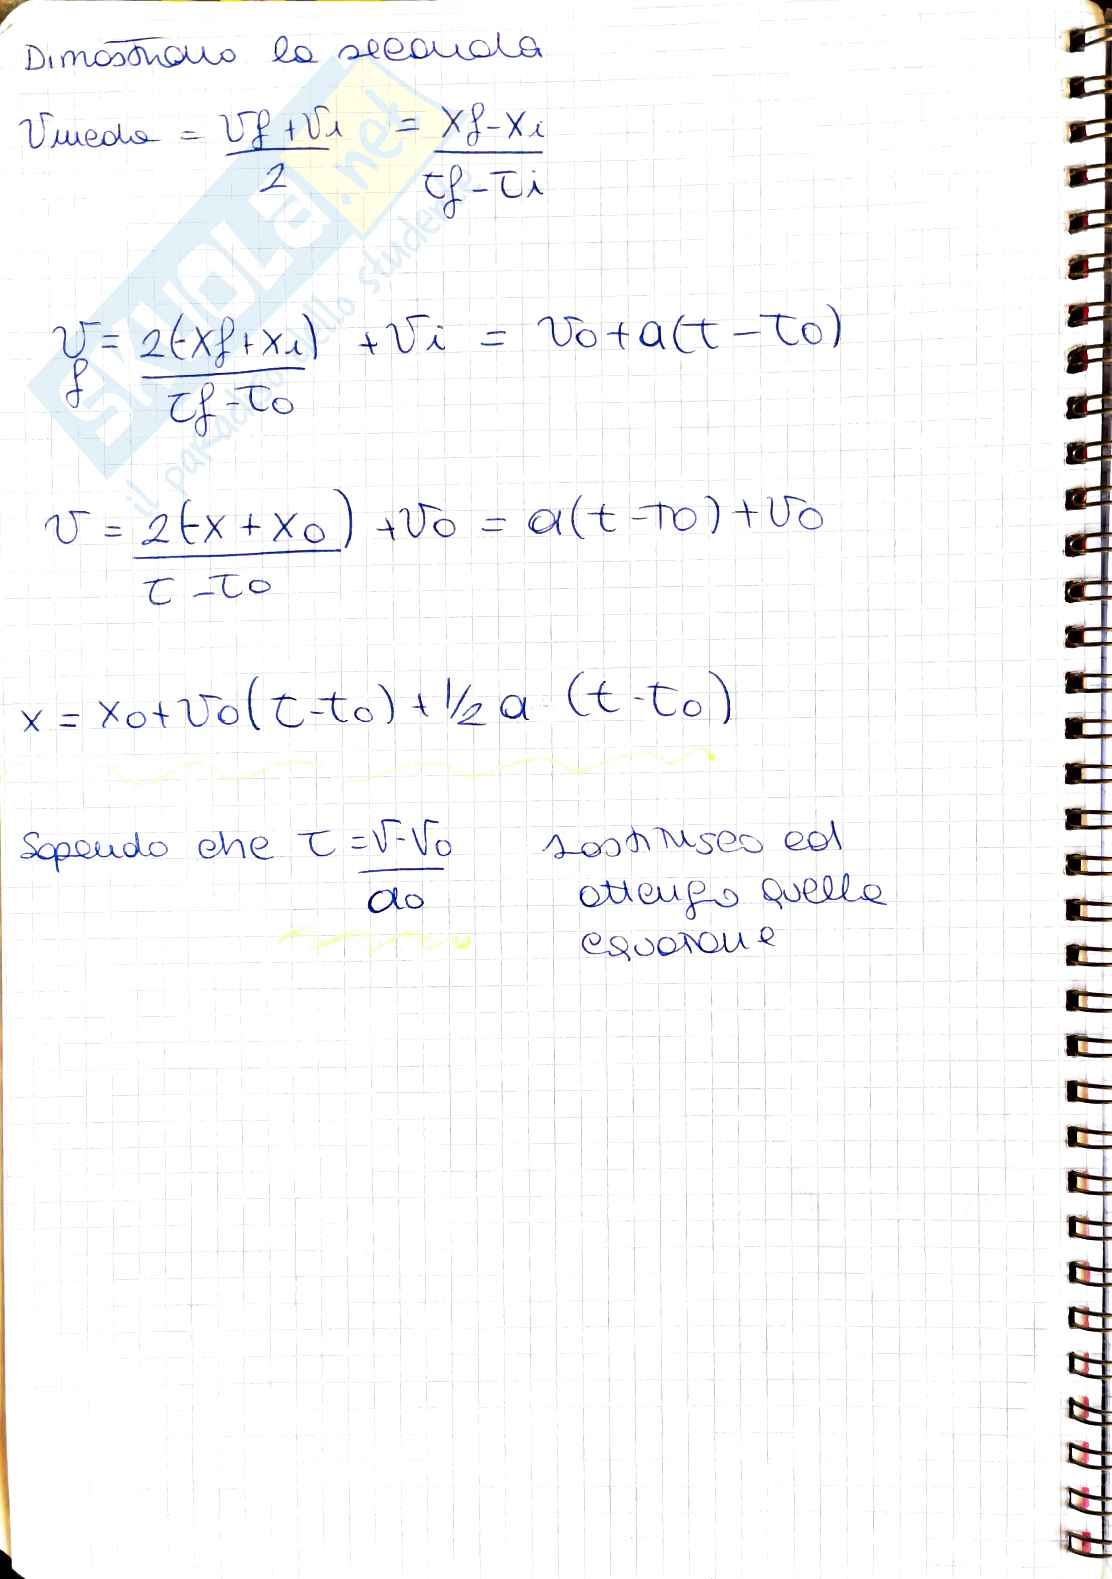 Dimostriamo la seconda
Vmedia = Vf + Vi / 2 = xf - xi / tf - ti
Vf = 2(-xf + xi) / tf - t0 + Vi = V0 + a(t - t0)
V = 2(-x + x0) / t - t0 + V0 = a(t - t0) + V0
x = x0 + V0(t - t0) + 1/2 a (t - t0)
Sapendo che t = V - V0 / a0 sostituisco ed
ottengo quella
equazione
SKUOLA.net
il paradiso dello studente